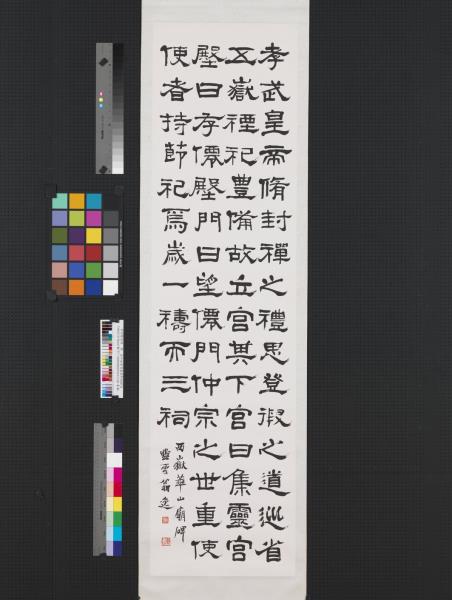 孝武皇帝脩封禪之禮思登徦之道巡省
五嶽禋祀豊備故立宮其下宮曰集靈宮
壂曰存僊壂門曰望僊門仲宗之世重使
使者持節祀焉歲一禱而三祠
西嶽華山廟碑
翁